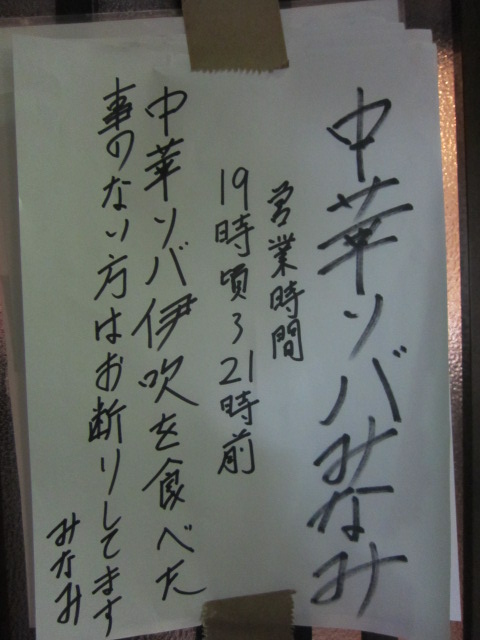 中華ソバみなみ
営業時間
19時頃〜21時前
中華ソバ伊吹を食べた
事のない方はお断りしてます
みなみ